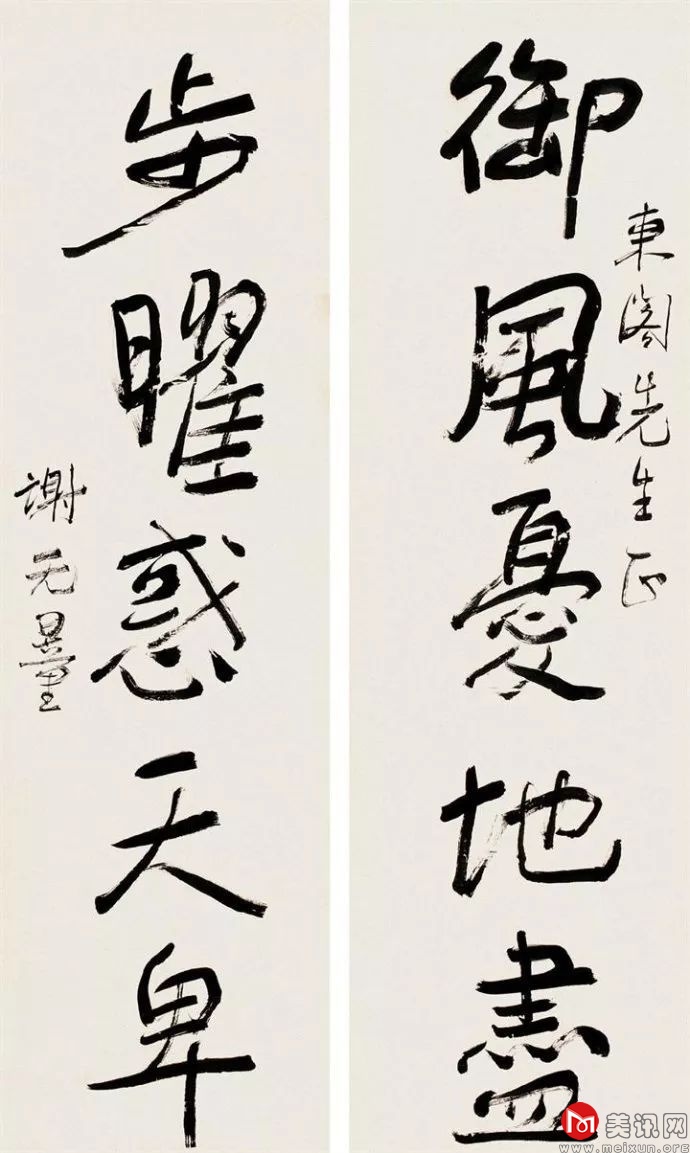 御風憂地盡
東閣先生正
步曜惑天卑
謝无量
美讯网
www.meixun.org